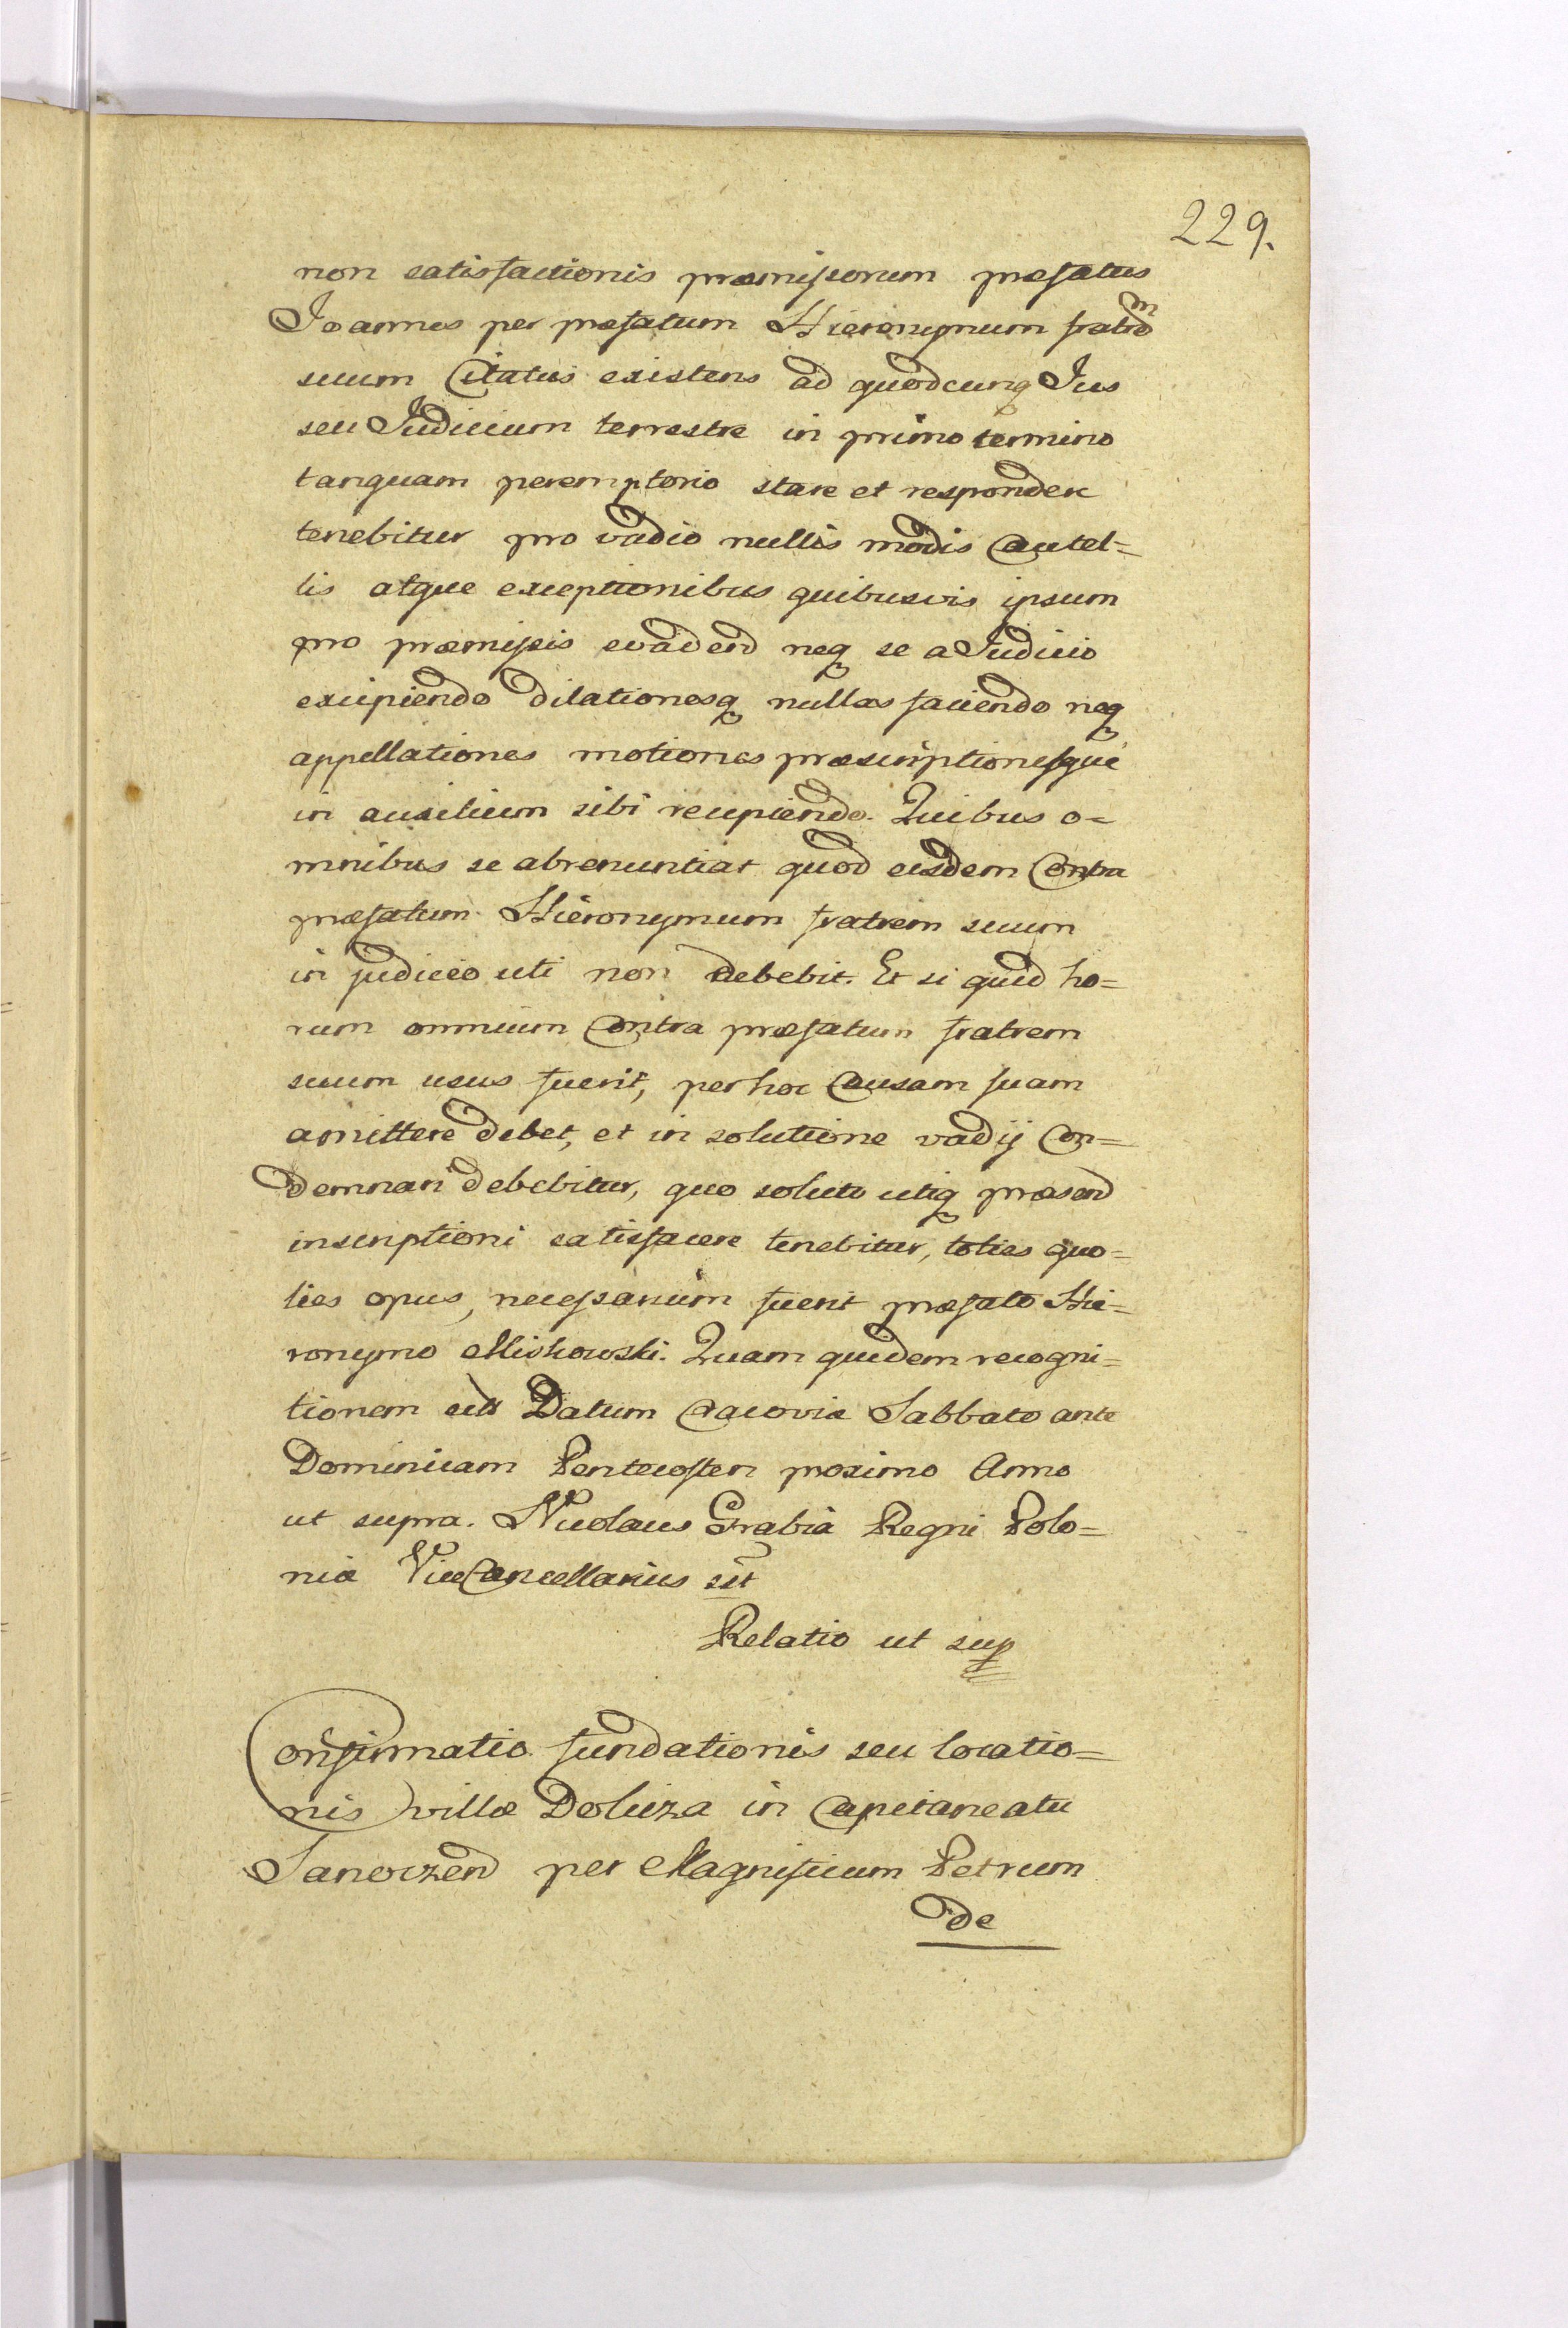 229.
non satisfactionis præmissorum præfatus
Joannes per præfatum Hieronymum fratrem
suum Citatus existens ad quodcunq Jus
seu Judicium terrestre in primo termino
tanquam peremptorio stare et respondere
tenebitur pro vadio nullis modis Cautel=
lis atque exceptionibus quibusvis ipsum
pro præmissis evadend neq se a Judicio
excipiendo dilationesq nullas faciendo neq
appellationes motiones præscriptionesque
in auxilium sibi recipiendo. Quibus o=
mnibus se abrenuntiat quod eisdem Contra
præfatum Hieronymum fratrem suum
in judicio uti non debebit. Et si quid ho=
rum omnium Contra præfatum fratrem
suum usus fuerit, per hoc Causam suam
amittere debet, et in solutione vadij Con=
demnari debebitur, quo soluto utiq præsend
inscriptioni satisfacere tenebitur, toties quo=
ties opus, necessarium fuerit præfato Hie=
ronymo Mishowski. Quam quidem recogni=
tionem Datum Cracoviæ Sabbato ante
Dominicam Pentecosten proximo Anno
ut supra. Nicolaus Grabia Regni Polo=
niæ ViceCancellarius sst
Relatio ut sup
Confirmatio fundationis seu locatio=
nis villæ Dolicza in Capitaneatu
Sanoczend per Magnificum Petrum
de